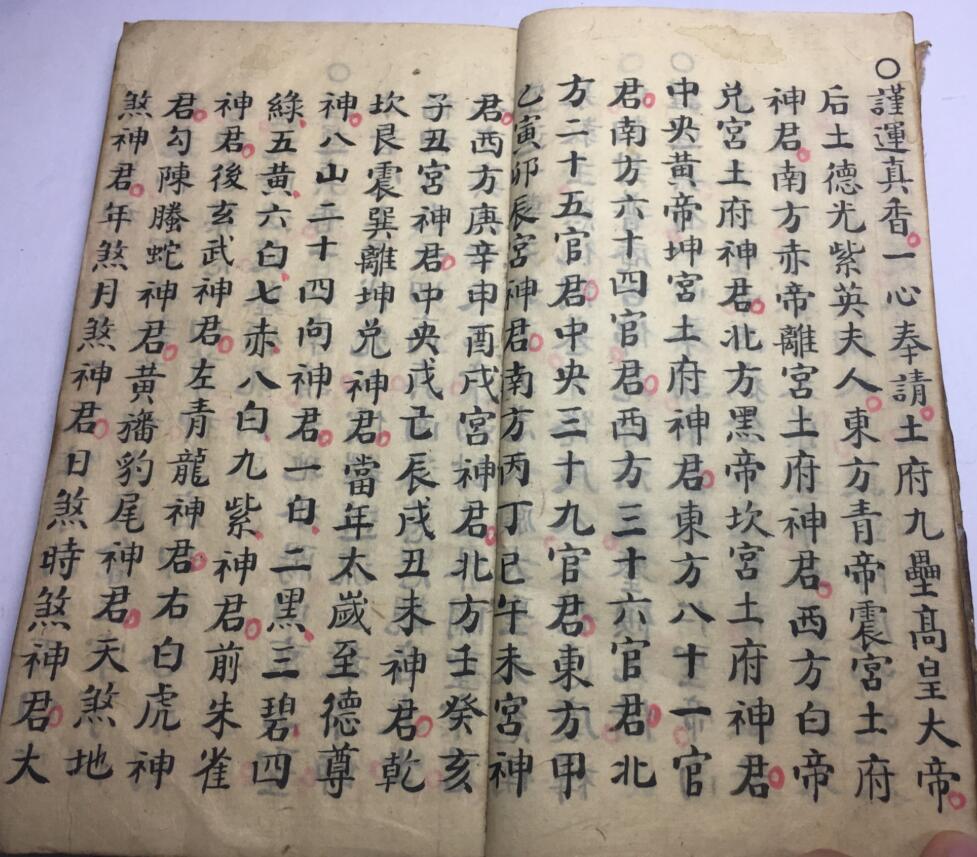 ○謹運真香。一心奉請。土府九壘髙皇大帝。
后土德光紫英夫人。東方青帝震宮土府
神君。南方赤帝離宮土府神君。西方白帝
兑宮土府神君。北方黑帝坎宮土府神君。
中央黃帝坤宮土府神君。東方八十一官
君。南方六十四官君。西方三十六官君。北
方二十五官君。中央三十九官君。東方甲
乙寅卯辰宮神君。南方丙丁巳午未宮神
君。西方庚辛申酉戌宮神君。北方壬癸亥
子丑宮神君。中央戊己辰戌丑未神君。乾
坎艮震巽離坤兑神君。當年太歲至德尊
神。八山二十四向神君。一白、二黑、三碧、四
綠、五黃、六白、七赤、八白、九紫、神君。前朱雀
神君。後玄武神君。左青龍神君。右白虎神
君。勾陳螣蛇神君。黃旛豹尾神君。天煞地
煞神君。年煞月煞神君。日煞時煞神君。大